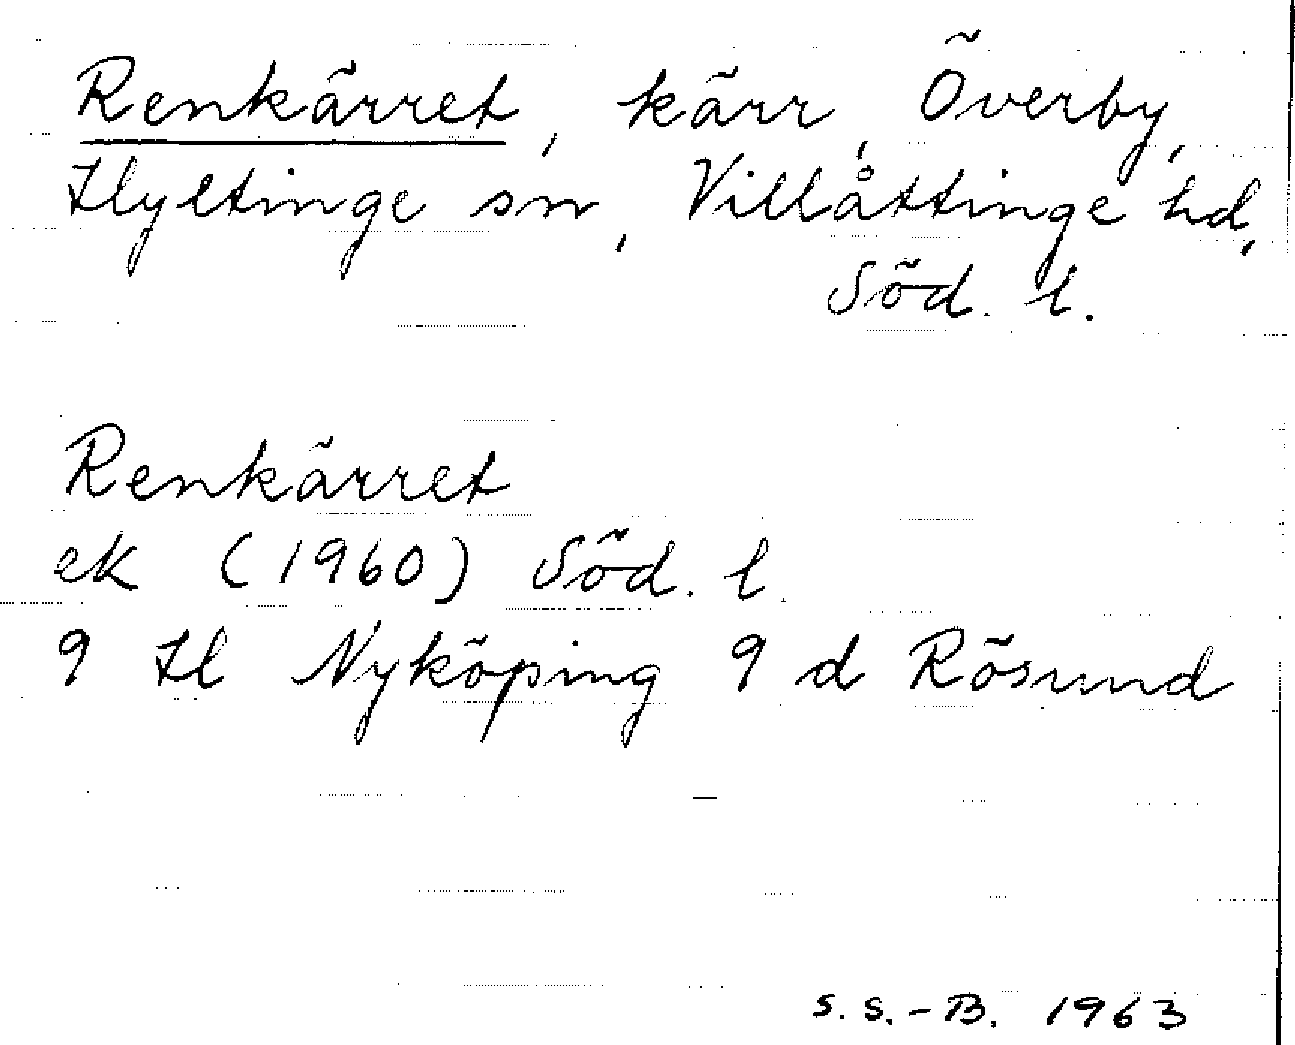 Renkärret, kärr, Överby,
Hyltinge sn, Villåttinge hd,
Söd. l.
Renkärret
ek (1960) Söd. l.
9 H Nyköping 9 d Rösund
S. S.-B. 1963